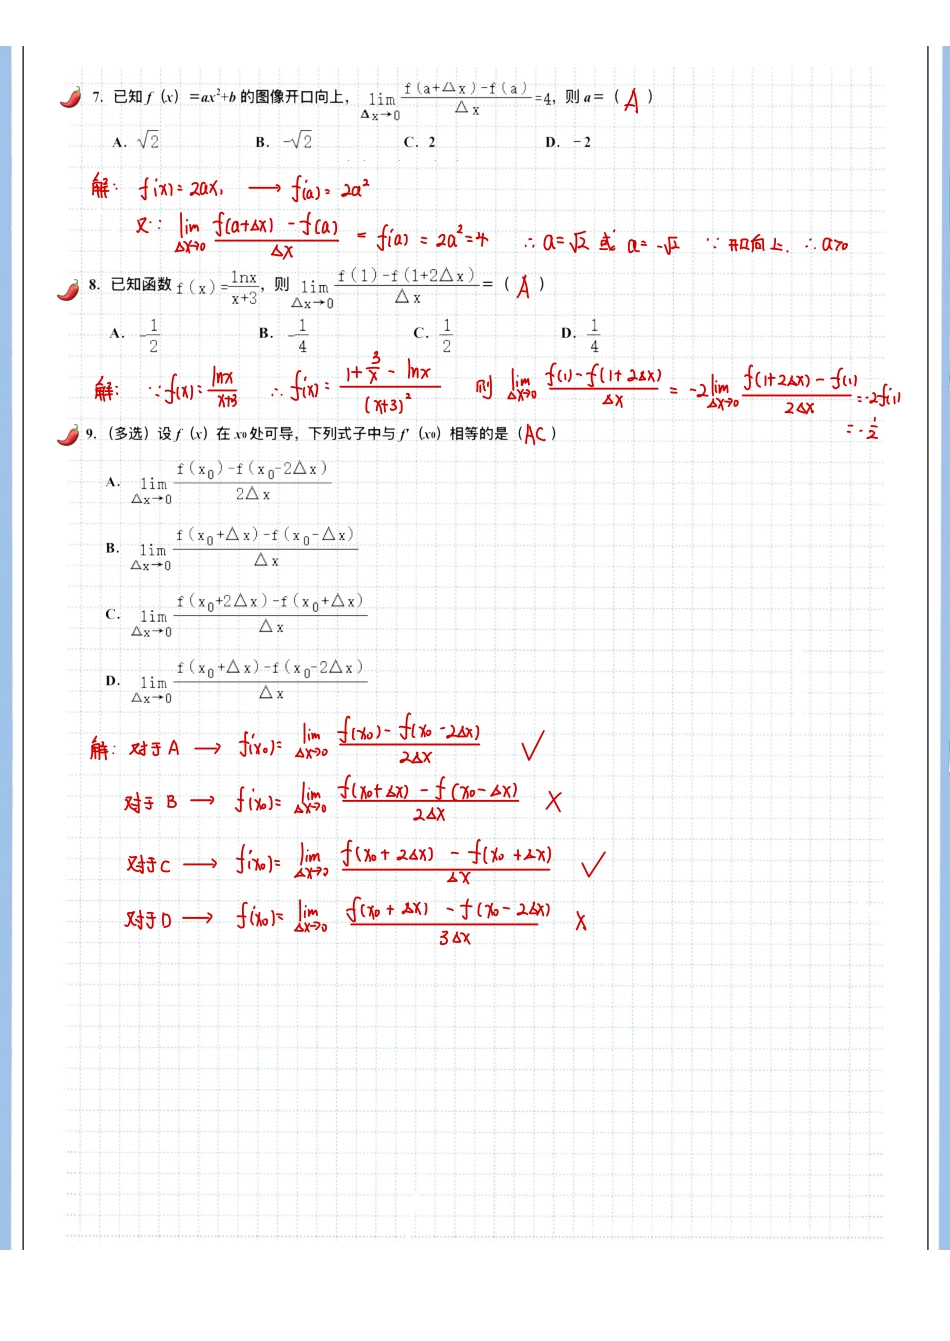 7. 已知 f（x）=ax²+b 的图像开口向上，lim Δx→0 (f(a+Δx)-f(a))/Δx=4，则 a=（ A ）
A. √2 B. -√2 C. 2 D. -2
解: f'(x)=2ax, → f'(a)=2a²
又∵ lim Δx→0 (f(a+Δx)-f(a))/Δx = f'(a) = 2a²=4 ∴a=√2 或 a=-√2 ∵开口向上. ∴a>0
8. 已知函数 f(x)=lnx/(x+3)，则 lim Δx→0 (f(1)-f(1+2Δx))/Δx=（ A ）
A. -1/2 B. -1/4 C. 1/2 D. 1/4
解: ∵f(x)=lnx/(x+3) ∴f'(x)=(1+3/x-lnx)/(x+3)² 则 lim Δx→0 (f(1)-f(1+2Δx))/Δx = -2 lim Δx→0 (f(1+2Δx)-f(1))/2Δx =-2f'(1)
=-1/2
9.（多选）设 f（x）在 x₀ 处可导，下列式子中与 f'（x₀）相等的是（ AC ）
A. lim Δx→0 (f(x₀)-f(x₀-2Δx))/2Δx
B. lim Δx→0 (f(x₀+Δx)-f(x₀-Δx))/Δx
C. lim Δx→0 (f(x₀+2Δx)-f(x₀+Δx))/Δx
D. lim Δx→0 (f(x₀+Δx)-f(x₀-2Δx))/Δx
解: 对于A → f'(x₀)= lim Δx→0 (f(x₀)-f(x₀-2Δx))/2Δx ✓
对于 B → f'(x₀)= lim Δx→0 (f(x₀+Δx)-f(x₀-Δx))/2Δx ×
对于C → f'(x₀)= lim Δx→0 (f(x₀+2Δx)-f(x₀+Δx))/Δx ✓
对于D → f'(x₀)= lim Δx→0 (f(x₀+Δx)-f(x₀-2Δx))/3Δx ×